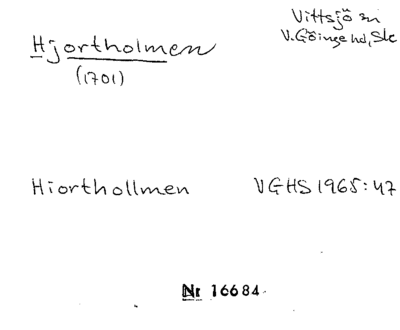 Hjortholmen
Vittsjö sn
V. Göinge hd, Sk
(1701)
Hiorthollmen VGHS 1965:47
Nr 16684